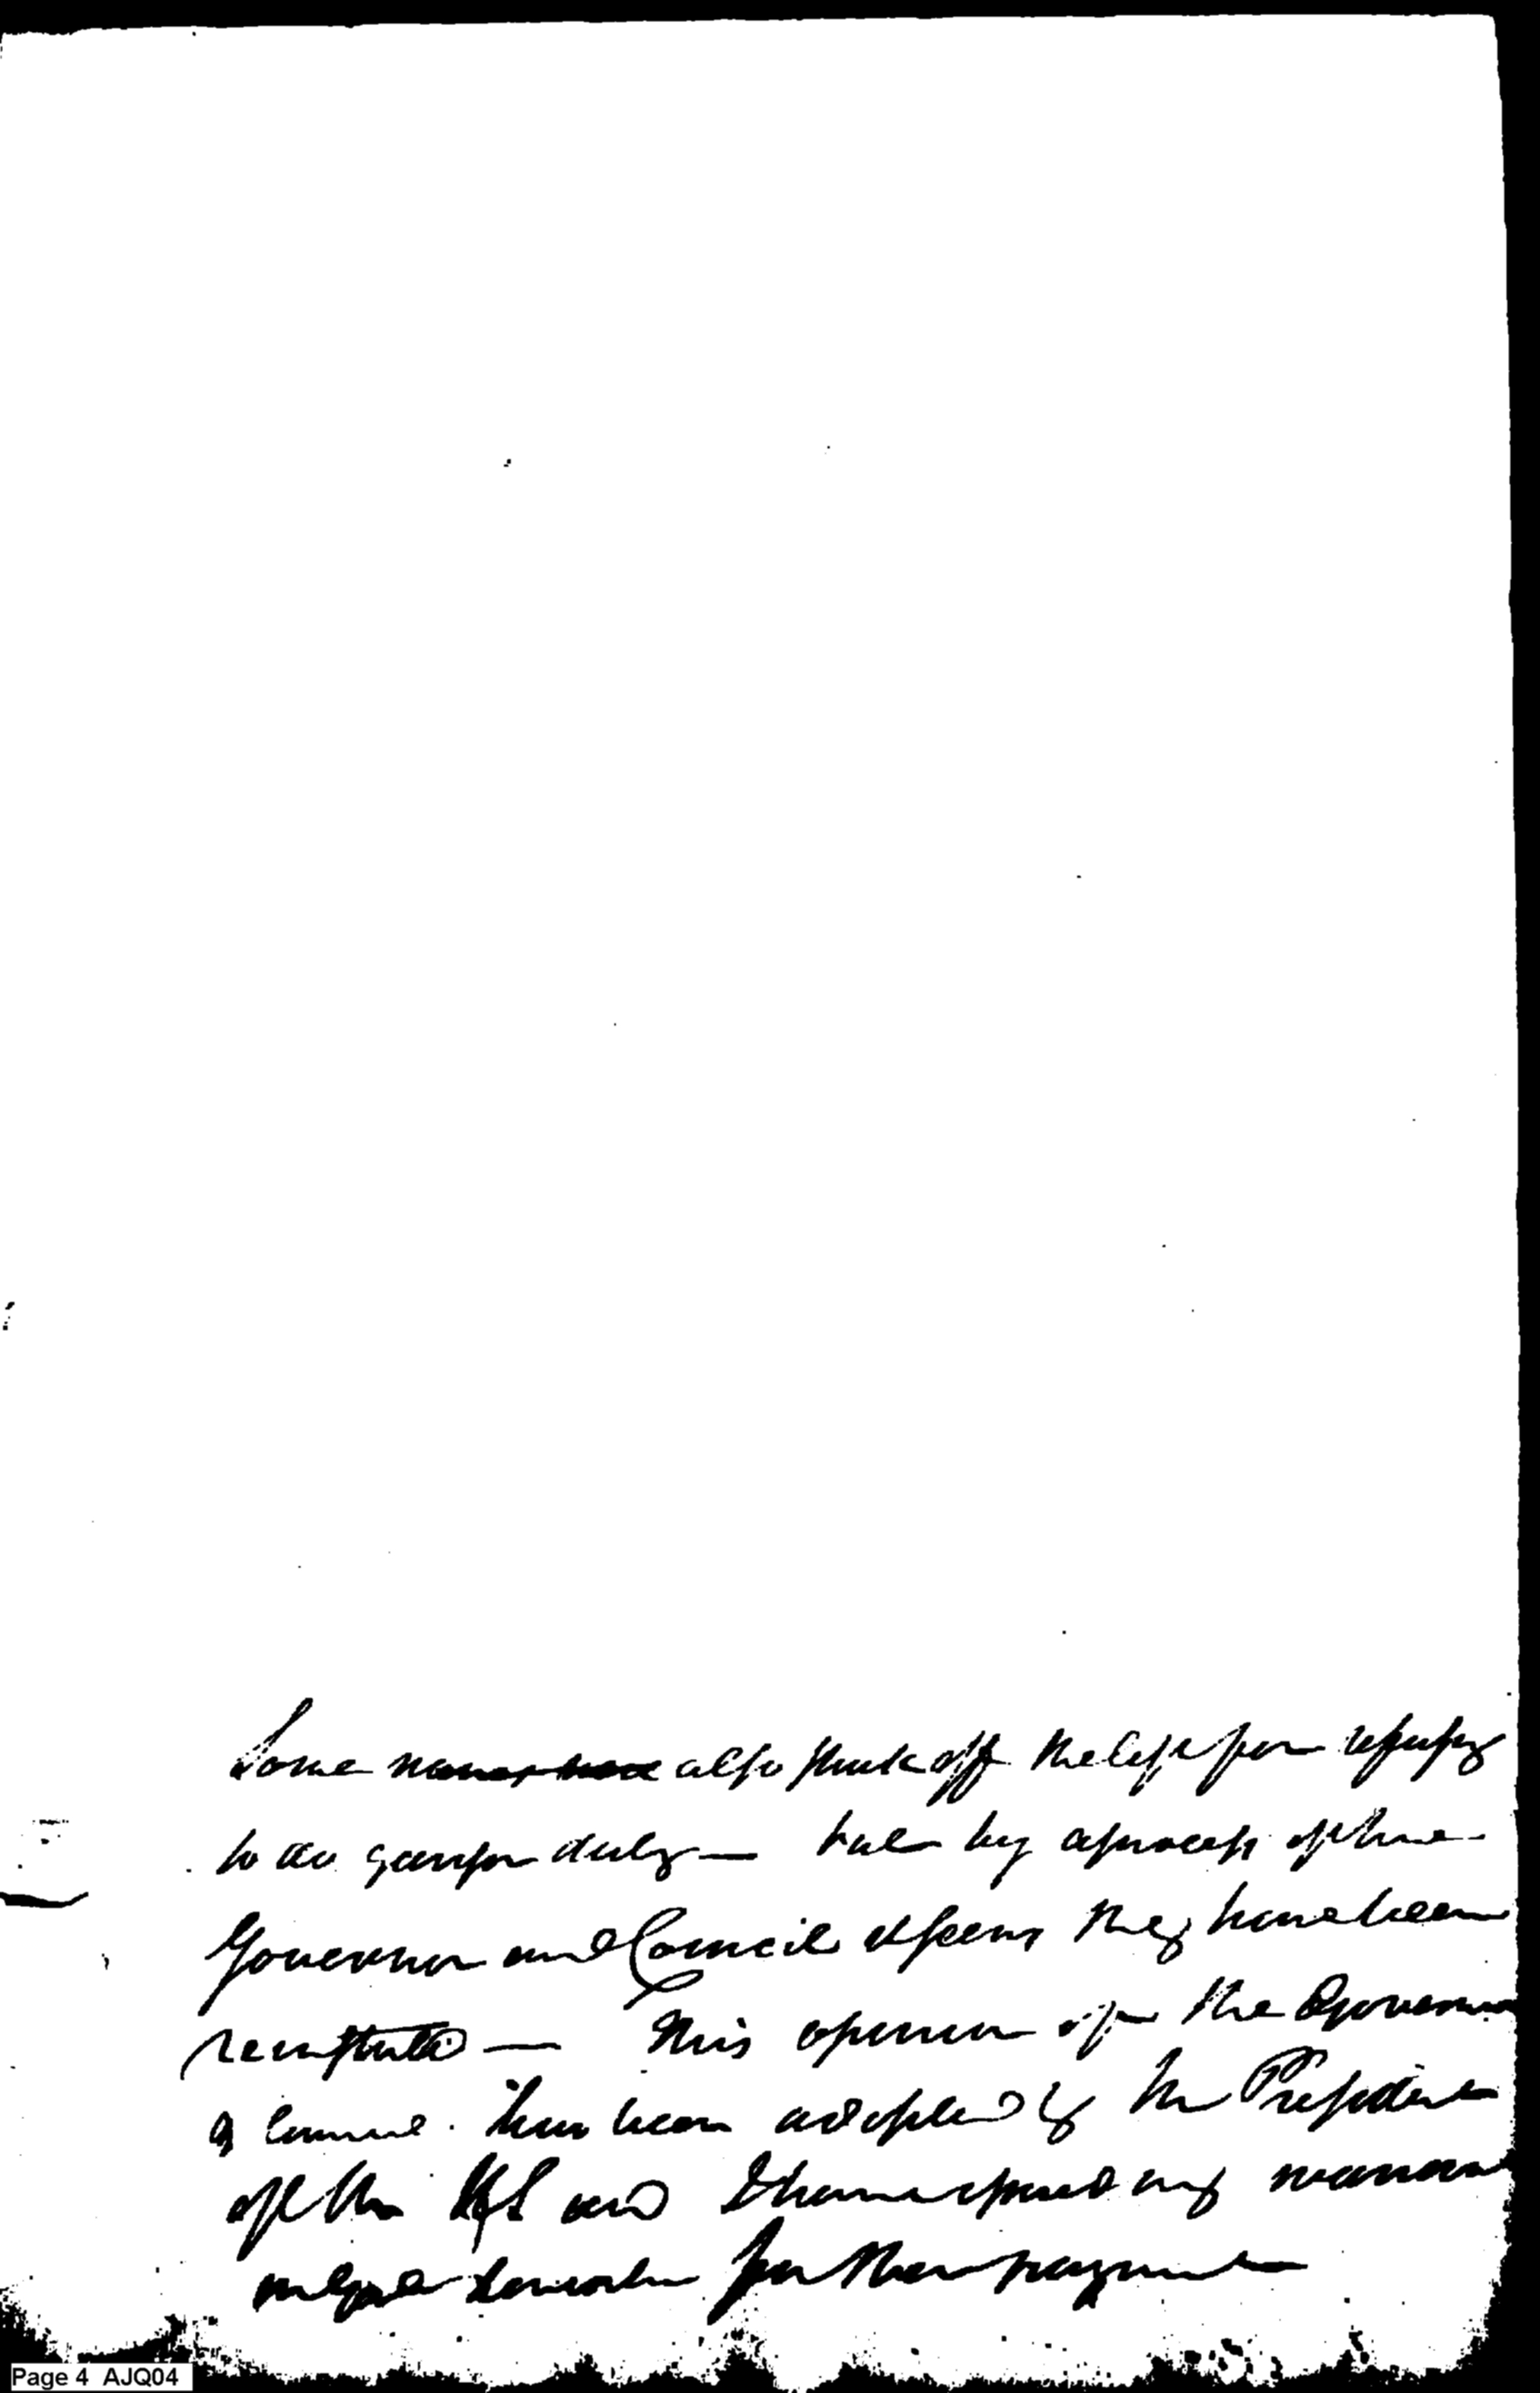 Some names also struck off the list for refusing
to do garrison duty — but by a process of the
Governor and Council it seems they have been
reinstated — This opinion of the Governor
& Council has been adopted by the President
of the US and
for their payment
Page 4 AJQ04